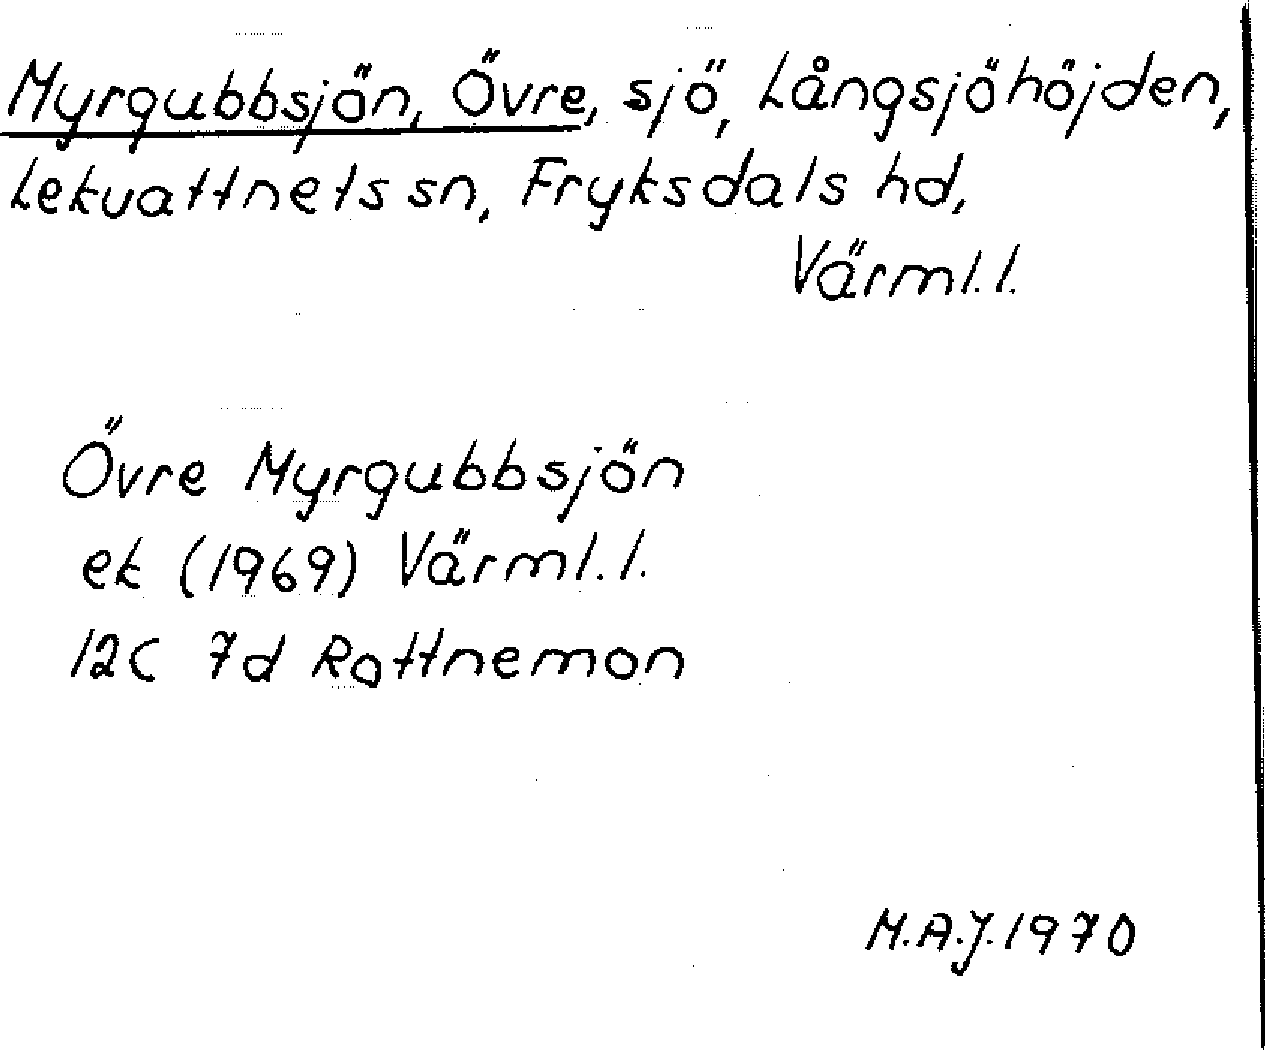 Myrgubbsjön, Övre, sjö, Långsjöhöjden,
Lekvattnets sn, Fryksdals hd,
Värml. l.
Övre Myrgubbsjön
ek (1969) Värml. l.
12C 7d Rottnemon
M.A.J. 1970